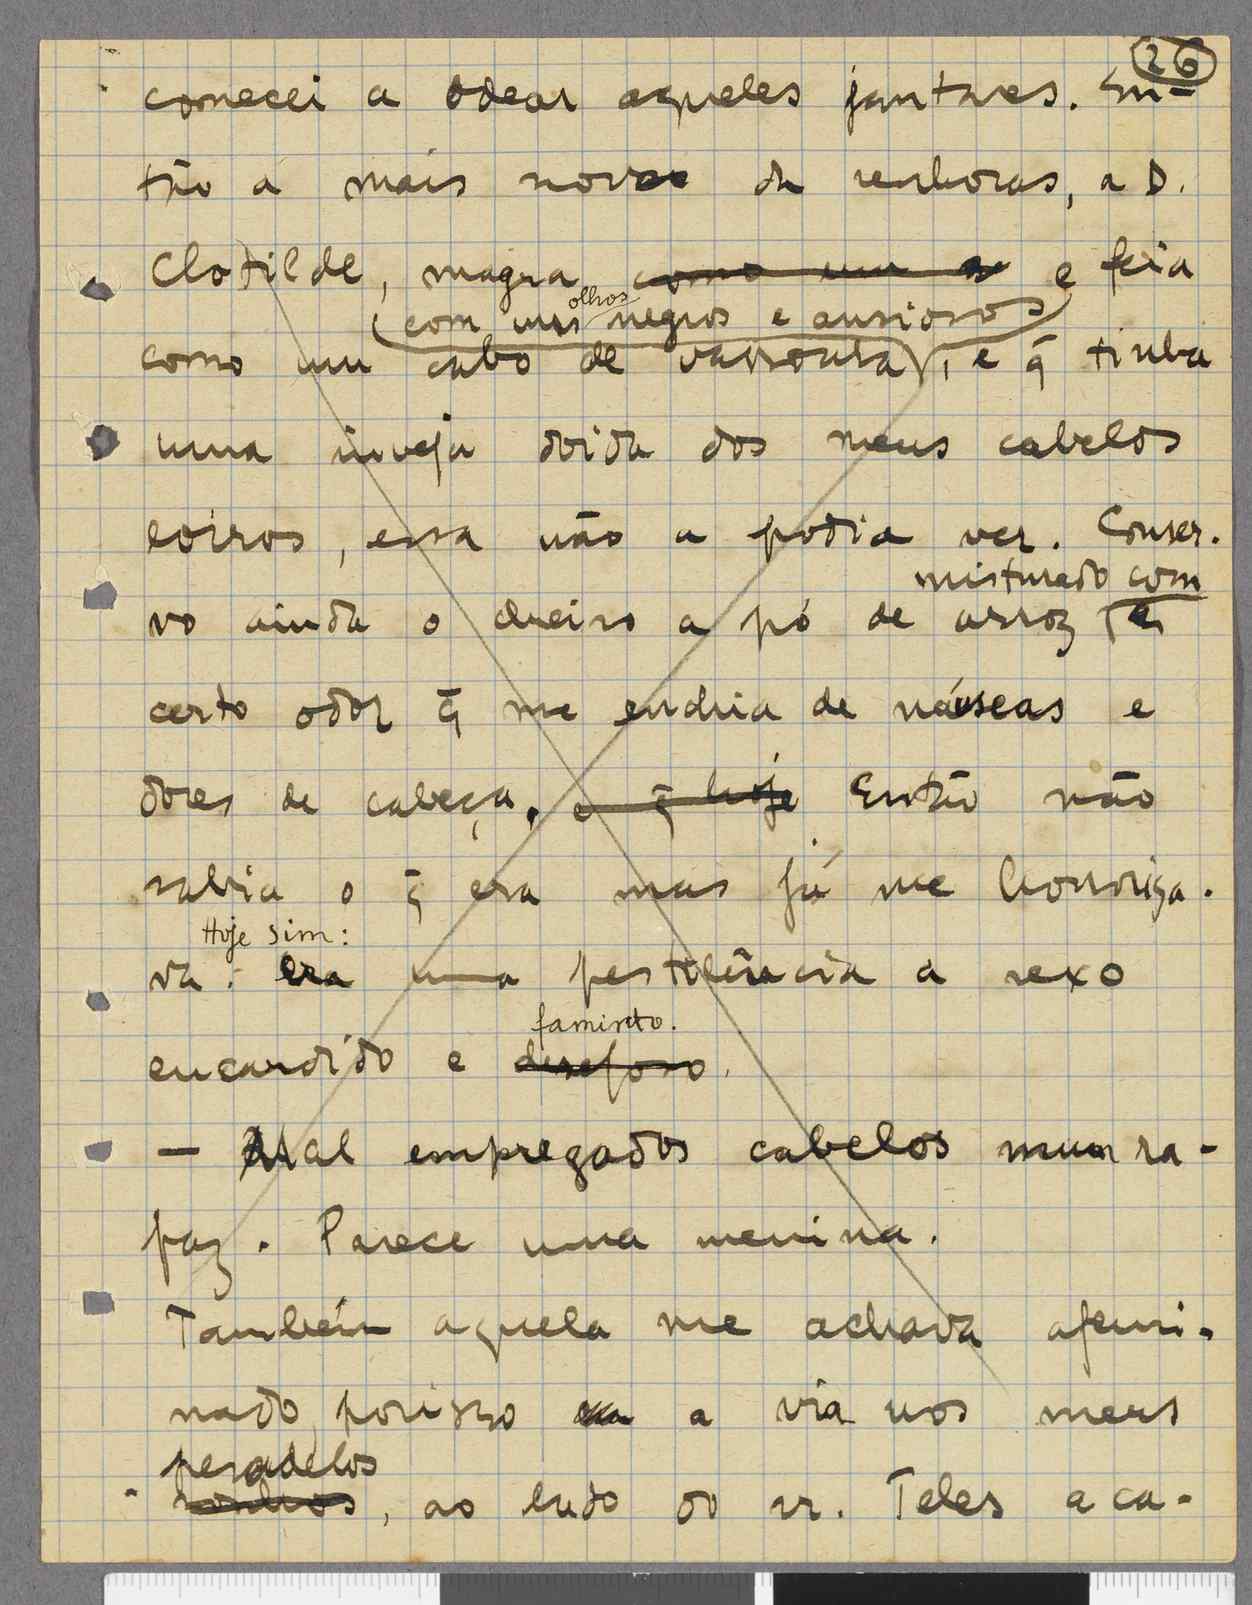 26
comecei a odear aqueles jantares. En-
tão a mais nova da senhoras, a D.
Clotilde, magra como um e feia
(com uns olhos negros e ansiosos)
como um cabo de vassoura, e q̃ tinha
uma inveja doida dos meus cabelos
loiros, essa não a podia ver. Conser-
misturado com
vo ainda o cheiro a pó de arroz e
certo odor q̃ me enchia de náuseas e
dores de cabeça. o q̃ hoje Então não
sabia o q̃ era mas já me horroriza-
Hoje sim:
va: era uma pestilência a sexo
faminto.
encardido e desejoso.
— Mal empregados cabelos num ra-
paz. Parece uma menina.
Também aquela me achava afemi-
nado, porisso a via nos meus
pesadelos
sonhos, ao lado do sr. Teles a ca-